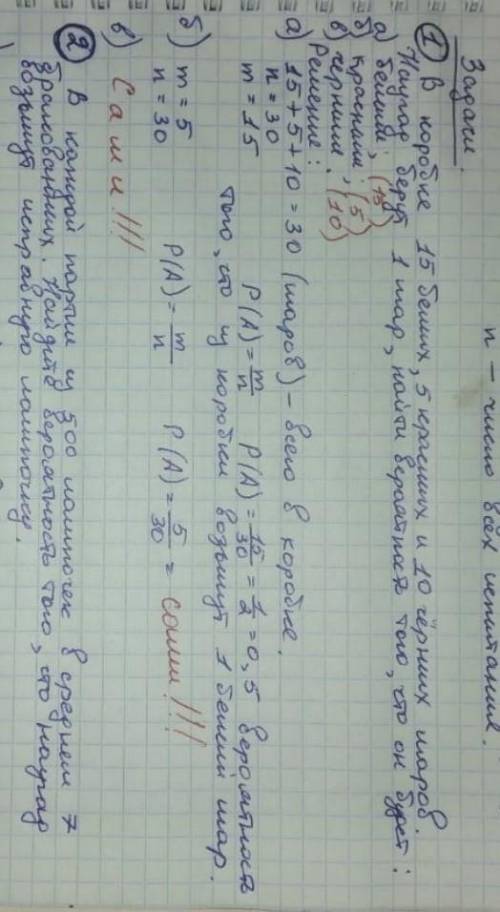 n - число всех испытаний.
Задачи.
① В коробке 15 белых, 5 красных и 10 чёрных шаров.
Наугад берут 1 шар, найти вероятность того, что он будет:
а) белым; (15)
б) красным; (5)
в) чёрным. (10)
Решение:
а) 15 + 5 + 10 = 30 (шаров) - всего в коробке.
n = 30
m = 15 P(A) = m/n P(A) = 15/30 = 1/2 = 0,5 вероятность
того, что из коробки возьмут 1 белый шар.
б) m = 5
n = 30 P(A) = m/n P(A) = 5/30 = сами!!!
в) Сами!!!
② В каждой партии из 500 лампочек в среднем 7
бракованных. Найдите вероятность того, что наугад
возьмут исправную лампочку.